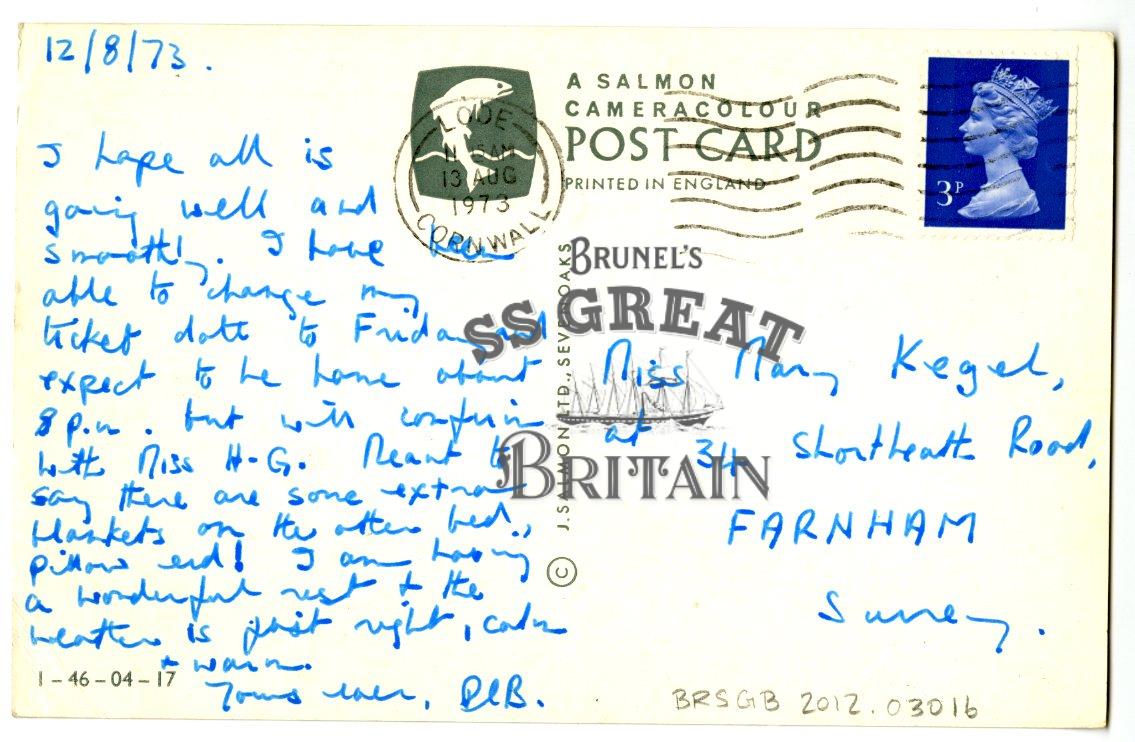 12/8/73.
I hope all is
going well and
smoothly. I have been
able to change my
ticket date to Friday and
expect to be home about
8 p.m. but will confirm
with Miss H-G. Meant to
say there are some extra
blankets on the other bed,
pillow end! I am having
a wonderful rest & the
weather is just right, calm
& warm.
Yours ever,
1-46-04-17
A SALMON
CAMERACOLOUR
POST CARD
PRINTED IN ENGLAND
LOOE
13 AUG
1973
CORNWALL
3P
© J. SALMON LTD., SEVENOAKS
BRUNEL'S
SS GREAT
BRITAIN
Miss Mary Kegel,
at 34 Shortheath Road,
FARNHAM
Surrey.
BRSGB 2012.03016